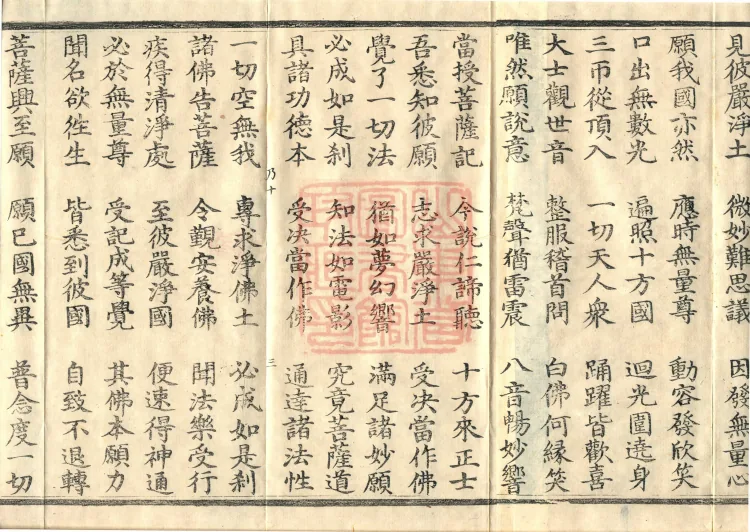 見彼嚴淨土　微妙難思議　因發無量心
願我國亦然　應時無量尊　動容發欣笑
口出無數光　遍照十方國　迴光圍遶身
三帀從頂入　一切天人衆　踊躍皆歡喜
大士觀世音　整服稽首問　白佛何緣笑
唯然願說意　梵聲猶雷震　八音暢妙響
當授菩薩記　今說仁諦聽　十方來正士
吾悉知彼願　志求嚴淨土　受决當作佛
覺了一切法　猶如夢幻響　滿足諸妙願
必成如是刹　知法如電影　究竟菩薩道
具諸功德本　受决當作佛　通達諸法性
乃十　三
一切空無我　專求淨佛土　必成如是刹
諸佛告菩薩　令覲安養佛　聞法樂受行
疾得清淨處　至彼嚴淨國　便速得神通
必於無量尊　受記成等覺　其佛本願力
聞名欲徃生　皆悉到彼國　自致不退轉
菩薩興至願　願巳國無異　普念度一切